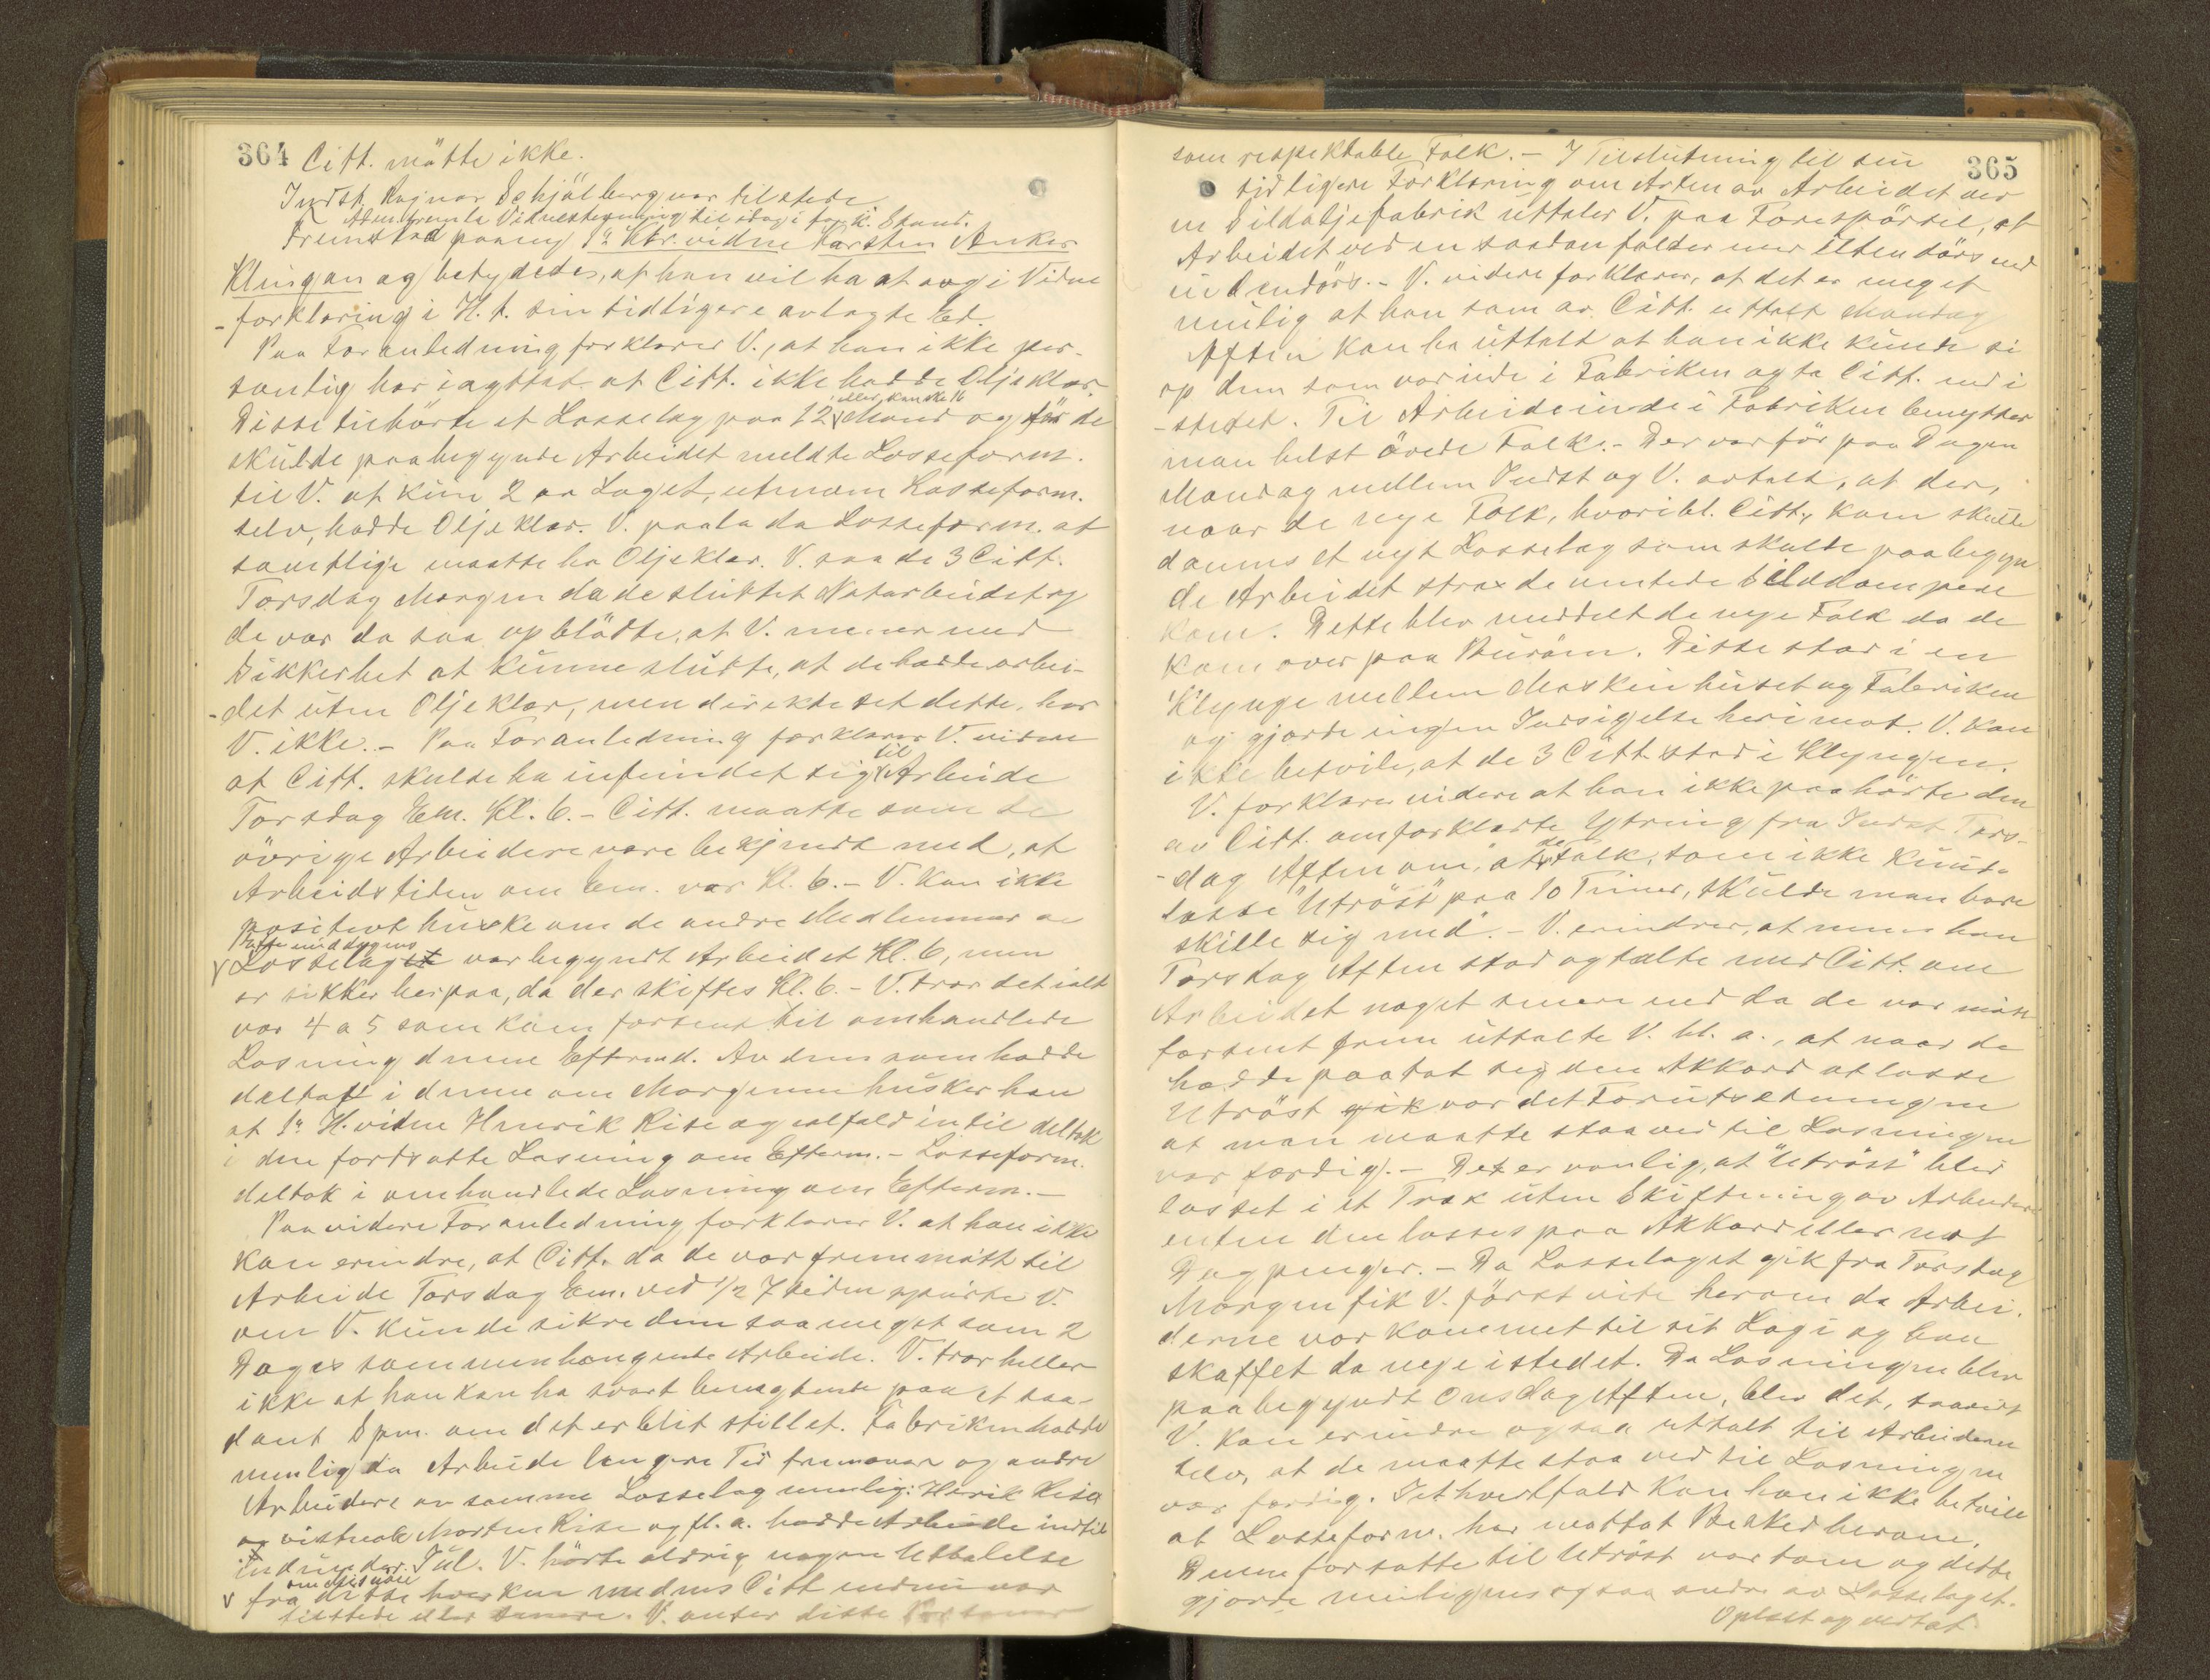 364 Citt. mötte ikke.
Indst. Ragnar Schjölberg var tilstede
Fremstod paany 1ste Ktr. vidne Karsten Anker
Klingan og betydedes, at han vil ha at avgi Vidne
-forklaring i H. t. sin tidligere avlagte Ed.
Paa Foranledning forklarer V., at han ikke per-
sonlig har iagttat at Citt. ikke hadde Oljeklær.
eller kanske 16
Disse tilhörte et Losselag paa 12 Mand og för de
skulde paabegynde Arbeidet meldte Losseform.
til V. at kun 2 av Laget, utenom Losseform.
selv, hadde Oljeklær. V. paala da Losseform. at
samtlige maatte ha Oljeklær. V. saa de 3 Citt.
Torsdag Morgen da de sluttet Natarbeidet og
de var da saa opblödte, at V. mener med
Sikkerhet at kunne slutte, at de hadde arbei-
-det uten Oljeklær, men direkte set dette, har
V. ikke. - Paa Foranledning forklarer V. videre
at Citt. skulde ha infundet sig til Arbeide
Torsdag Em. Kl. 6. - Citt. maatte som de
övrige Arbeidere være bekjendt med, at
Arbeidstiden om Em. var Kl. 6. - V. kan ikke
positivt huske om de andre Medlemmer av
Eftermiddagens
Losselaget var begyndt Arbeidet Kl. 6, men
er sikker herpaa, da der skiftes Kl. 6. - V. tror det ialt
var 4 a 5 som kom forsent til omhandlede
Losning denne Efterm. Av dem som hadde
deltatt i denne om Morgenen husker han
at 1ste H. vidne Henrik Rise og ialfald en til deltok
i den fortsatte Losning om Efterm. - Losseform.
deltok i omhandlede Losning om Efterm. -
Paa videre Foranledning forklarer V. at han ikke
kan erindre, at Citt. da de var fremmött til
Arbeide Torsdag Em. ved 1/2 7 tiden spurte V.
om V. kunde sikre dem saa meget som 2
Dages sammenhengende Arbeide. V. tror heller
ikke at han kan ha svart benegtende paa et saa-
dant Spm. om det er blit stillet. Fabriken hadde
nemlig da Arbeide lengere Tid fremover og andre
Arbeidere av samme Losselag nemlig: Henrik Rise
og vistnok Morten Rise og fl. a. hadde Arbeide indtil
ind under Jul. V. hörte aldrig nogen Uttalelse
om Misnöie
fra disse hverken medens Citt endnu var
tilstede eller senere. V. anser disse Personer
365
som respektable Folk. - I Tilslutning til sin
tidligere Forklaring om Arten av Arbeidet ved
en Sildoljefabrik uttaler V. paa Forespörsel, at
Arbeidet ved en saadan falder mer utendörs end
indendörs. - V. videre forklarer, at det er meget
mulig at han som av Citt. uttalt Mandag
Aften kan ha uttalt at han ikke kunde si
op dem som var inde i Fabriken og ta Citt. ind i
-stedet. Til Arbeide inde i Fabriken benytter
man helst övede Folk. - Der var för paa Dagen
Mandag mellem Indst og V. avtalt, at der,
naar de nye Folk, hvoribl. Citt, kom skulde
dannes et nyt Losselag som skulde paabegyn
de Arbeidet strax de ventede Silddampere
kom. Dette blev meddelt de nye Folk da de
kom over paa Buröen. Disse stod i en
Klynge mellem Maskinhuset og Fabriken
og gjorde ingen Indsigelse herimot. V. kan
ikke betvile, at de 3 Citt stod i Klyngen.
V. forklarer videre at han ikke paahörte den
av Citt. omforklarte Ytring fra Indst Tors-
-dag Aften om, at de Folk, som ikke kunde
losse "Utröst" paa 10 Timer, skulde man bare
skille sig med". - V. erindrer, at mens han
Torsdag Aften stod og talte med Citt. om
Arbeidet noget senere end da de var mött
forsent frem uttalte V. bl. a., at naar de
hadde paatat sig den Akkord at losse
Utröst gik var det Forutsetningen
at man maatte staa ved til Losningen
var færdig. - Det er vanlig, at "Utröst" blir
losset i et Træk uten Skiftning av Arbeidere
enten den losses paa Akkord eller mot
Dagpenger. - Da Losselaget gik fra Torsdag
Morgen fik V. först vite herom da Arbei-
derne var kommet til sit Logi og han
skaffet da nye istedet. Da Losningen blev
paabegyndt Onsdag Aften, blev det, saavidt
V. kan erindre ogsaa uttalt til Arbeiderne
selv, at de maatte staa ved til Losningen
var færdig. I ethvertfald kan han ikke betvile
at Losseform. har mottat Besked herom.
Denne forsatte til Utröst var tom og dette
gjorde muligens ogsaa andre av Losselaget.
Oplæst og vedtat